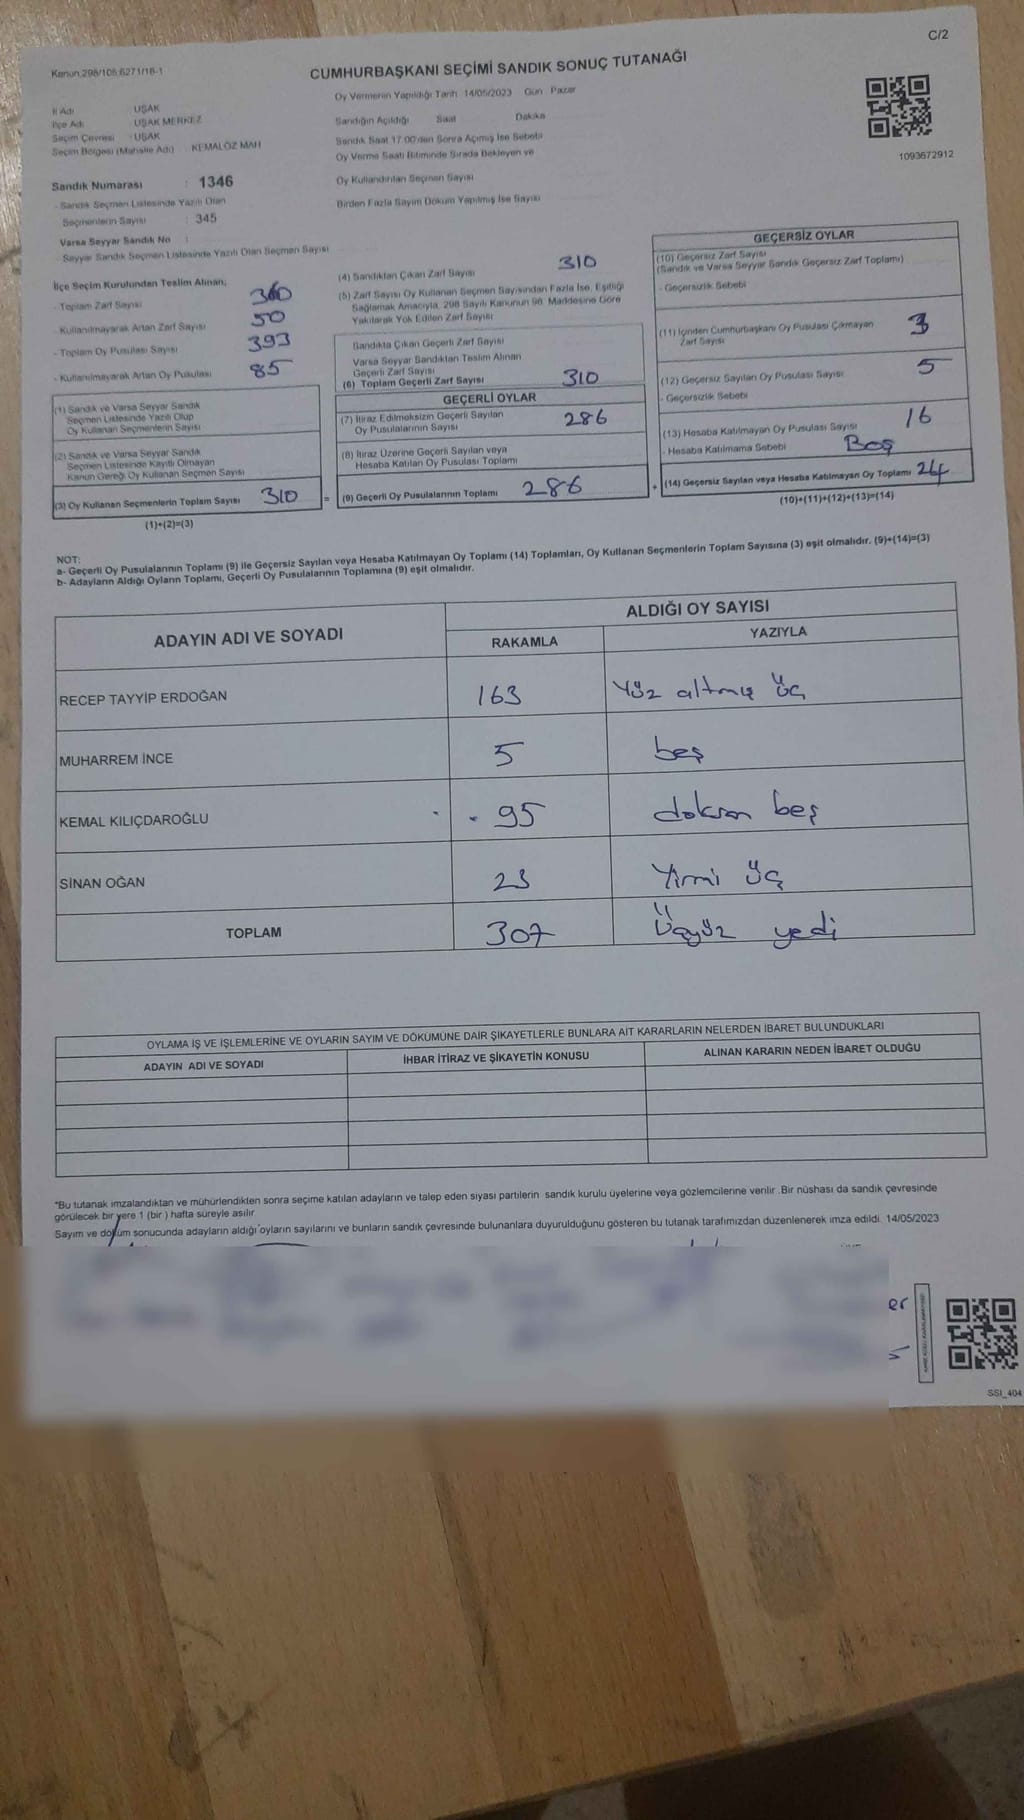 C/2
Kanun 298/105,6271/16-1
CUMHURBAŞKANI SEÇİMİ SANDIK SONUÇ TUTANAĞI
Oy Vermenin Yapıldığı Tarih 14/05/2023 Gün : Pazar
İl Adı UŞAK
İlçe Adı UŞAK MERKEZ
Seçim Çevresi UŞAK
Seçim Bölgesi (Mahalle Adı) KEMALÖZ MAH
Sandığın Açıldığı Saat Dakika
Sandık Saat 17:00'den Sonra Açımış İse Sebebi
Oy Verme Saati Bitiminde Sırada Bekleyen ve
Oy Kullandırılan Seçmen Sayısı
Birden Fazla Sayım Döküm Yapılmış İse Sayısı
1093672912
Sandık Numarası : 1346
- Sandık Seçmen Listesinde Yazılı Olan
Seçmenlerin Sayısı : 345
Varsa Seyyar Sandık No :
- Seyyar Sandık Seçmen Listesinde Yazılı Olan Seçmen Sayısı
İlçe Seçim Kurulundan Teslim Alınan;
- Toplam Zarf Sayısı 360
- Kullanılmayarak Artan Zarf Sayısı 50
- Toplam Oy Pusulası Sayısı 393
- Kullanılmayarak Artan Oy Pukulası 85
(1) Sandık ve Varsa Seyyar Sandık
Seçmen Listesinde Yazılı Olup
Oy Kullanan Seçmenlerin Sayısı
(2) Sandık ve Varsa Seyyar Sandık
Seçmen Listesinde Kayıtlı Olmayan
Kanun Gereği Oy Kullanan Seçmen Sayısı
(3) Oy Kullanan Seçmenlerin Toplam Sayısı 310
(1)+(2)=(3)
(4) Sandıktan Çıkan Zarf Sayısı 310
(5) Zarf Sayısı Oy Kullanan Seçmen Sayısından Fazla İse, Eşitliği
Sağlamak Amacıyla, 298 Sayılı Kanunun 98. Maddesine Göre
Yakılarak Yok Edilen Zarf Sayısı
Sandıkta Çıkan Geçerli Zarf Sayısı
Varsa Seyyar Sandıktan Teslim Alınan
Geçerli Zarf Sayısı
(6) Toplam Geçerli Zarf Sayısı 310
GEÇERLİ OYLAR
(7) İtiraz Edilmeksizin Geçerli Sayılan
Oy Pusulalarının Sayısı 286
(8) İtiraz Üzerine Geçerli Sayılan veya
Hesaba Katılan Oy Pusulası Toplamı
= (9) Geçerli Oy Pusulalarının Toplamı 286
GEÇERSİZ OYLAR
(10) Geçersiz Zarf Sayısı
(Sandık ve Varsa Seyyar Sandık Geçersiz Zarf Toplamı)
- Geçersizlik Sebebi
(11) İçinden Cumhurbaşkanı Oy Pusulası Çıkmayan
Zarf Sayısı 3
(12) Geçersiz Sayılan Oy Pusulası Sayısı 5
- Geçersizlik Sebebi
(13) Hesaba Katılmayan Oy Pusulası Sayısı 16
- Hesaba Katılmama Sebebi Boş
+ (14) Geçersiz Sayılan veya Hesaba Katılmayan Oy Toplamı 24
(10)+(11)+(12)+(13)=(14)
NOT:
a- Geçerli Oy Pusulalarının Toplamı (9) ile Geçersiz Sayılan veya Hesaba Katılmayan Oy Toplamı (14) Toplamları, Oy Kullanan Seçmenlerin Toplam Sayısına (3) eşit olmalıdır. (9)+(14)=(3)
b- Adayların Aldığı Oyların Toplamı, Geçerli Oy Pusulalarının Toplamına (9) eşit olmalıdır.
ADAYIN ADI VE SOYADI
ALDIĞI OY SAYISI
RAKAMLA YAZIYLA
RECEP TAYYİP ERDOĞAN 163 Yüz altmış üç
MUHARREM İNCE 5 beş
KEMAL KILIÇDAROĞLU 95 doksan beş
SİNAN OĞAN 23 Yirmi üç
TOPLAM 307 Üçyüz yedi
OYLAMA İŞ VE İŞLEMLERİNE VE OYLARIN SAYIM VE DÖKÜMÜNE DAİR ŞİKAYETLERLE BUNLARA AİT KARARLARIN NELERDEN İBARET BULUNDUKLARI
ADAYIN ADI VE SOYADI İHBAR İTİRAZ VE ŞİKAYETİN KONUSU ALINAN KARARIN NEDEN İBARET OLDUĞU
*Bu tutanak imzalandıktan ve mühürlendikten sonra seçime katılan adayların ve talep eden siyasi partilerin sandık kurulu üyelerine veya gözlemcilerine verilir .Bir nüshası da sandık çevresinde
görülecek bir yere 1 (bir ) hafta süreyle asılır
Sayım ve döküm sonucunda adayların aldığı oyların sayılarını ve bunların sandık çevresinde bulunanlara duyurulduğunu gösteren bu tutanak tarafımızdan düzenlenerek imza edildi. 14/05/2023
er
SSI_404